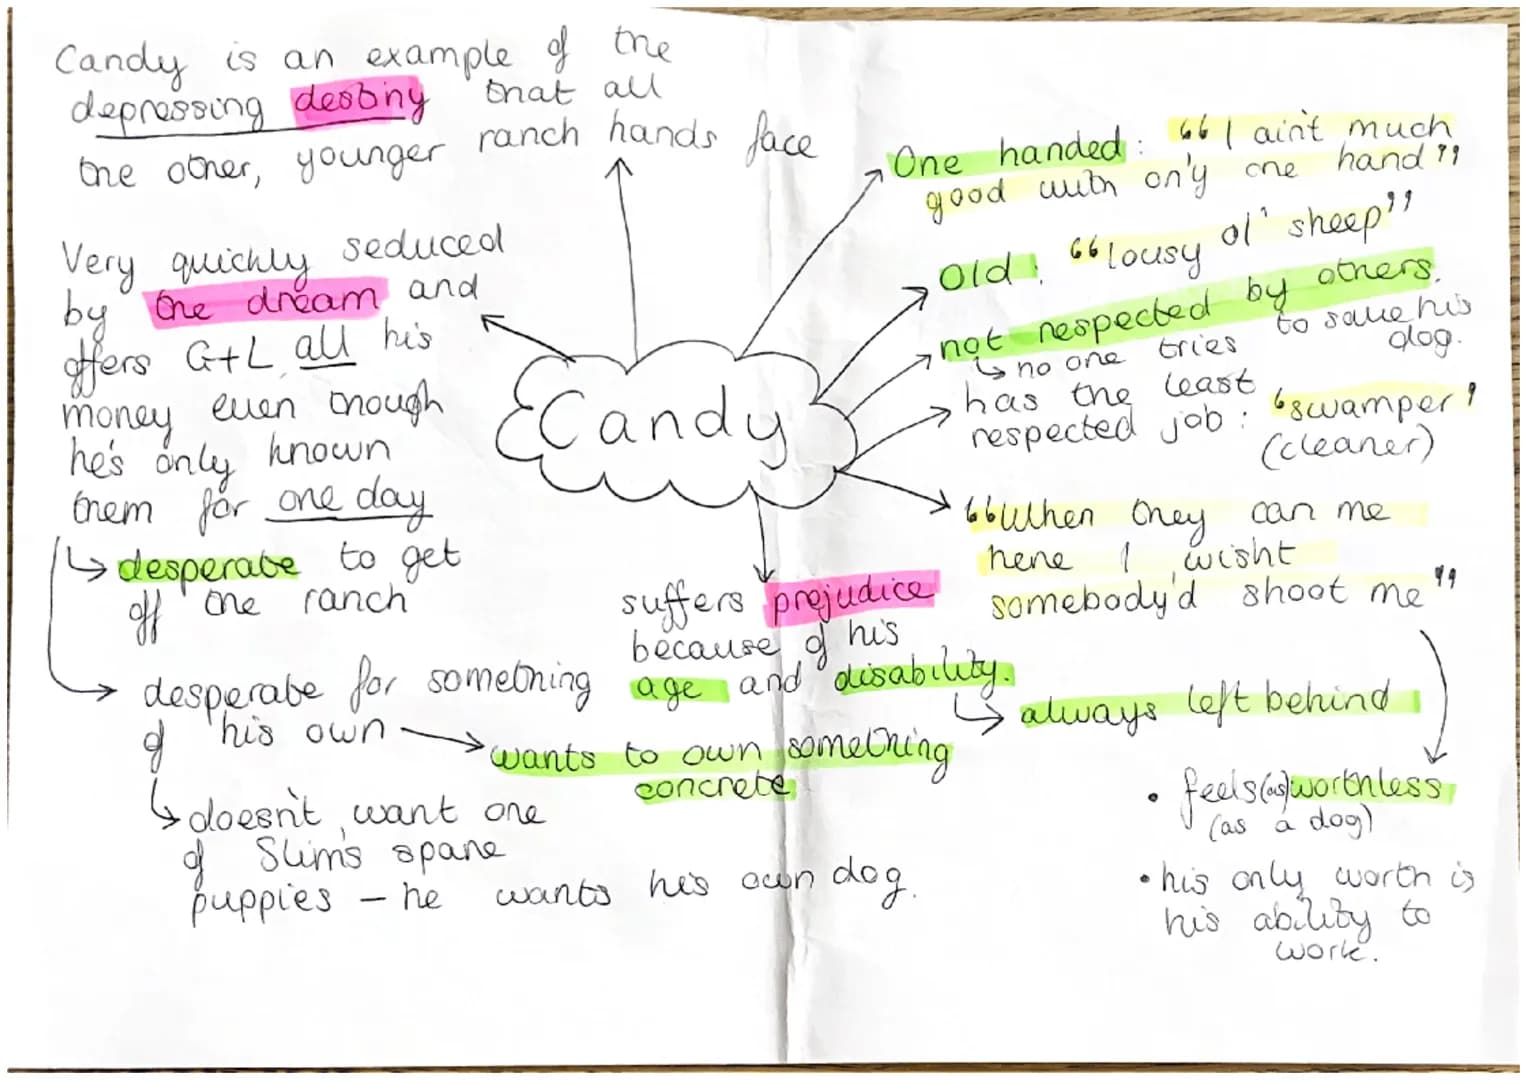 Candy is an example of the
depressing destiny that all
the other, younger ranch hands face
Very quickly seduced
by the dream and
offers G+L all his
money even though
he's only known
them for one day
↳ desperate to get
off the ranch
→ desperate for something
of his own → wants to own something
concrete
↳ doesn't want one
of Slim's spare
puppies – he wants his own dog.
Candy
suffers prejudice
because of his
age and disability.
↳ always left behind
One handed: "I ain't much
good with on'y one hand"
Old: "lousy ol' sheep"
not respected by others.
↳ no one tries to save his
dog.
has the least
respected job: 'swamper'
(cleaner)
"When they can me
here I wisht
somebody'd shoot me"
• feels (as) worthless
(as a dog)
• his only worth is
his ability to
work.